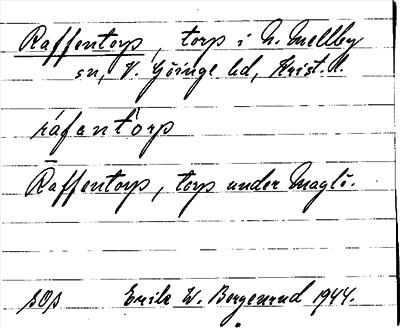 Raffentorp, torp i N. Mellby
sn, V. Göinge hd, Krist. l.
ráfantòrp
Raffentorp, torp under Maglö.
sOs Emile W. Bergeunrud 1944.